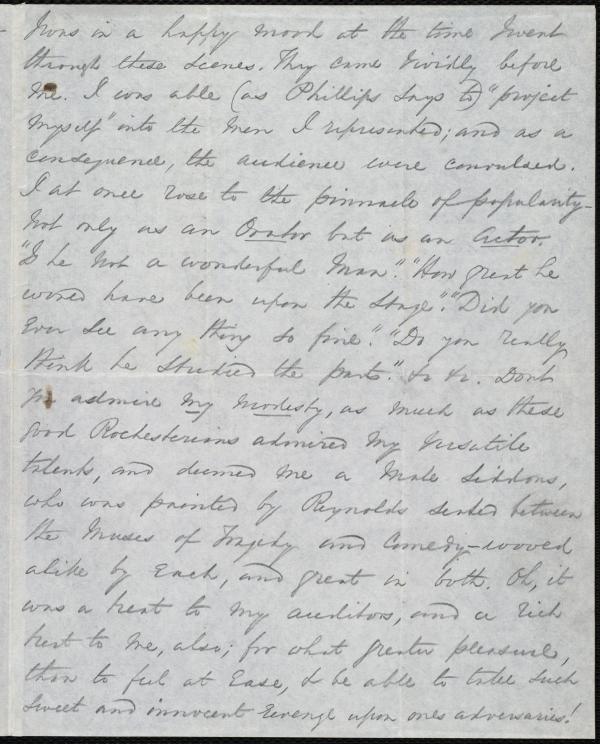 I was in a happy mood at the time I went
through these scenes. They came vividly before
me. I was able (as Phillips says to) "project
myself" into the men I represented; and as a
consequence, the audience were convulsed.
I at once rose to the pinnacle of popularity–
not only as an Orator but as an actor.
"Is he not a wonderful man". "How great he
would have been upon the Stage". "Did you
ever see any thing so fine". "Do you really
think he studied the part." &c &c. Dont
you admire my modesty, as much as these
good Rochesterians admired my versatile
talents, and deemed me a male Siddons,
who was painted by Reynolds seated between
the Muses of Tragedy and Comedy–wooed
alike by Each, and great in both. Oh, it
was a treat to my auditors, and a rich
treat to me, also; for what greater pleasure,
than to feel at Ease, & be able to take such
sweet and innocent revenge upon ones adversaries!